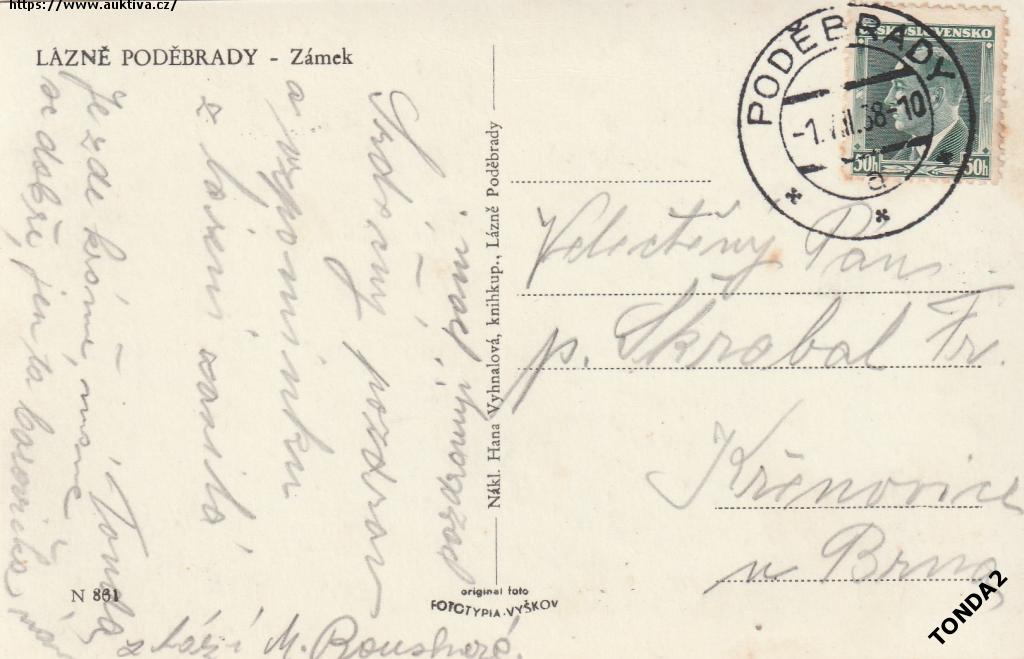 https://www.auktiva.cz/
LÁZNĚ PODĚBRADY - Zámek
Srdečný pozdrav
a vzpomínku
z lázní zasílá
Tonda
Je zde krásně, máme
se dobře, jen ta
pozdravujte
Nákl. Hana Vyhnalová, knihkup., Lázně Poděbrady
N 861
original foto
FOTOTYPIA-VYŠKOV
PODĚBRADY
-1.VII.38-10
a
ČESKOSLOVENSKO
50h 50h
Velectěný Pán
p. Skřabal Fr.
Křenovice
u Brna
TONDA2